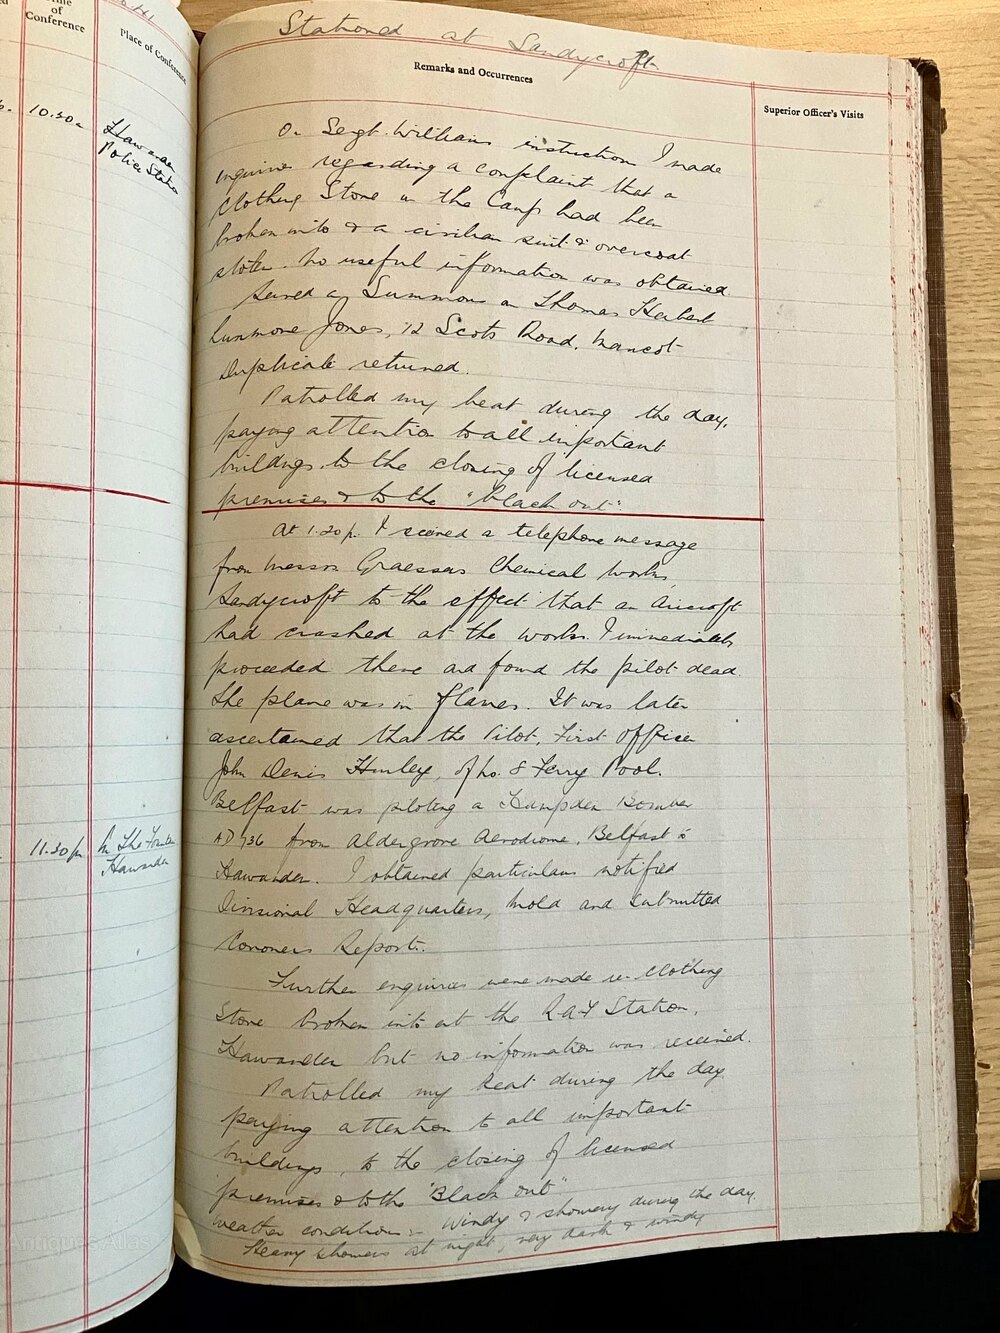 Time
of
Conference
Place of Conference
10.30a
Hawarden
Police Station
11.30p
Hawarden
Stationed at Sandycroft
Remarks and Occurrences
Superior Officer's Visits
On Sergt. Williams instruction I made
enquiries regarding a complaint that a
Clothing Store in the Camp had been
broken into & a civilian suit & overcoat
stolen. No useful information was obtained.
Served a Summons on Thomas Herbert
Jones, 12 Scots Road, Mancot
Duplicate returned.
Patrolled my beat during the day,
paying attention to all important
buildings to the closing of licensed
premises & to the "black out".
At 1.20p. I received a telephone message
from Messrs Graessers Chemical Works,
Sandycroft to the effect that an Aircraft
had crashed at the works. I immediately
proceeded there and found the pilot dead.
The plane was in flames. It was later
ascertained that the Pilot, First Officer
John Denis Hurley, of No. 8 Ferry Pool.
Belfast was piloting a Hampden Bomber
AD 736 from Aldergrove Aerodrome, Belfast to
Hawarden. I obtained particulars notified
Divisional Headquarters, Mold and submitted
Coroners Report.
Further enquiries were made re Clothing
Store broken into at the R.A.F Station,
Hawarden but no information was received.
Patrolled my beat during the day
paying attention to all important
buildings, to the closing of licensed
premises & to the "Black out"
weather conditions:- Windy & showery during the day.
Heavy showers at night, very dark & windy
Antiques Atlas